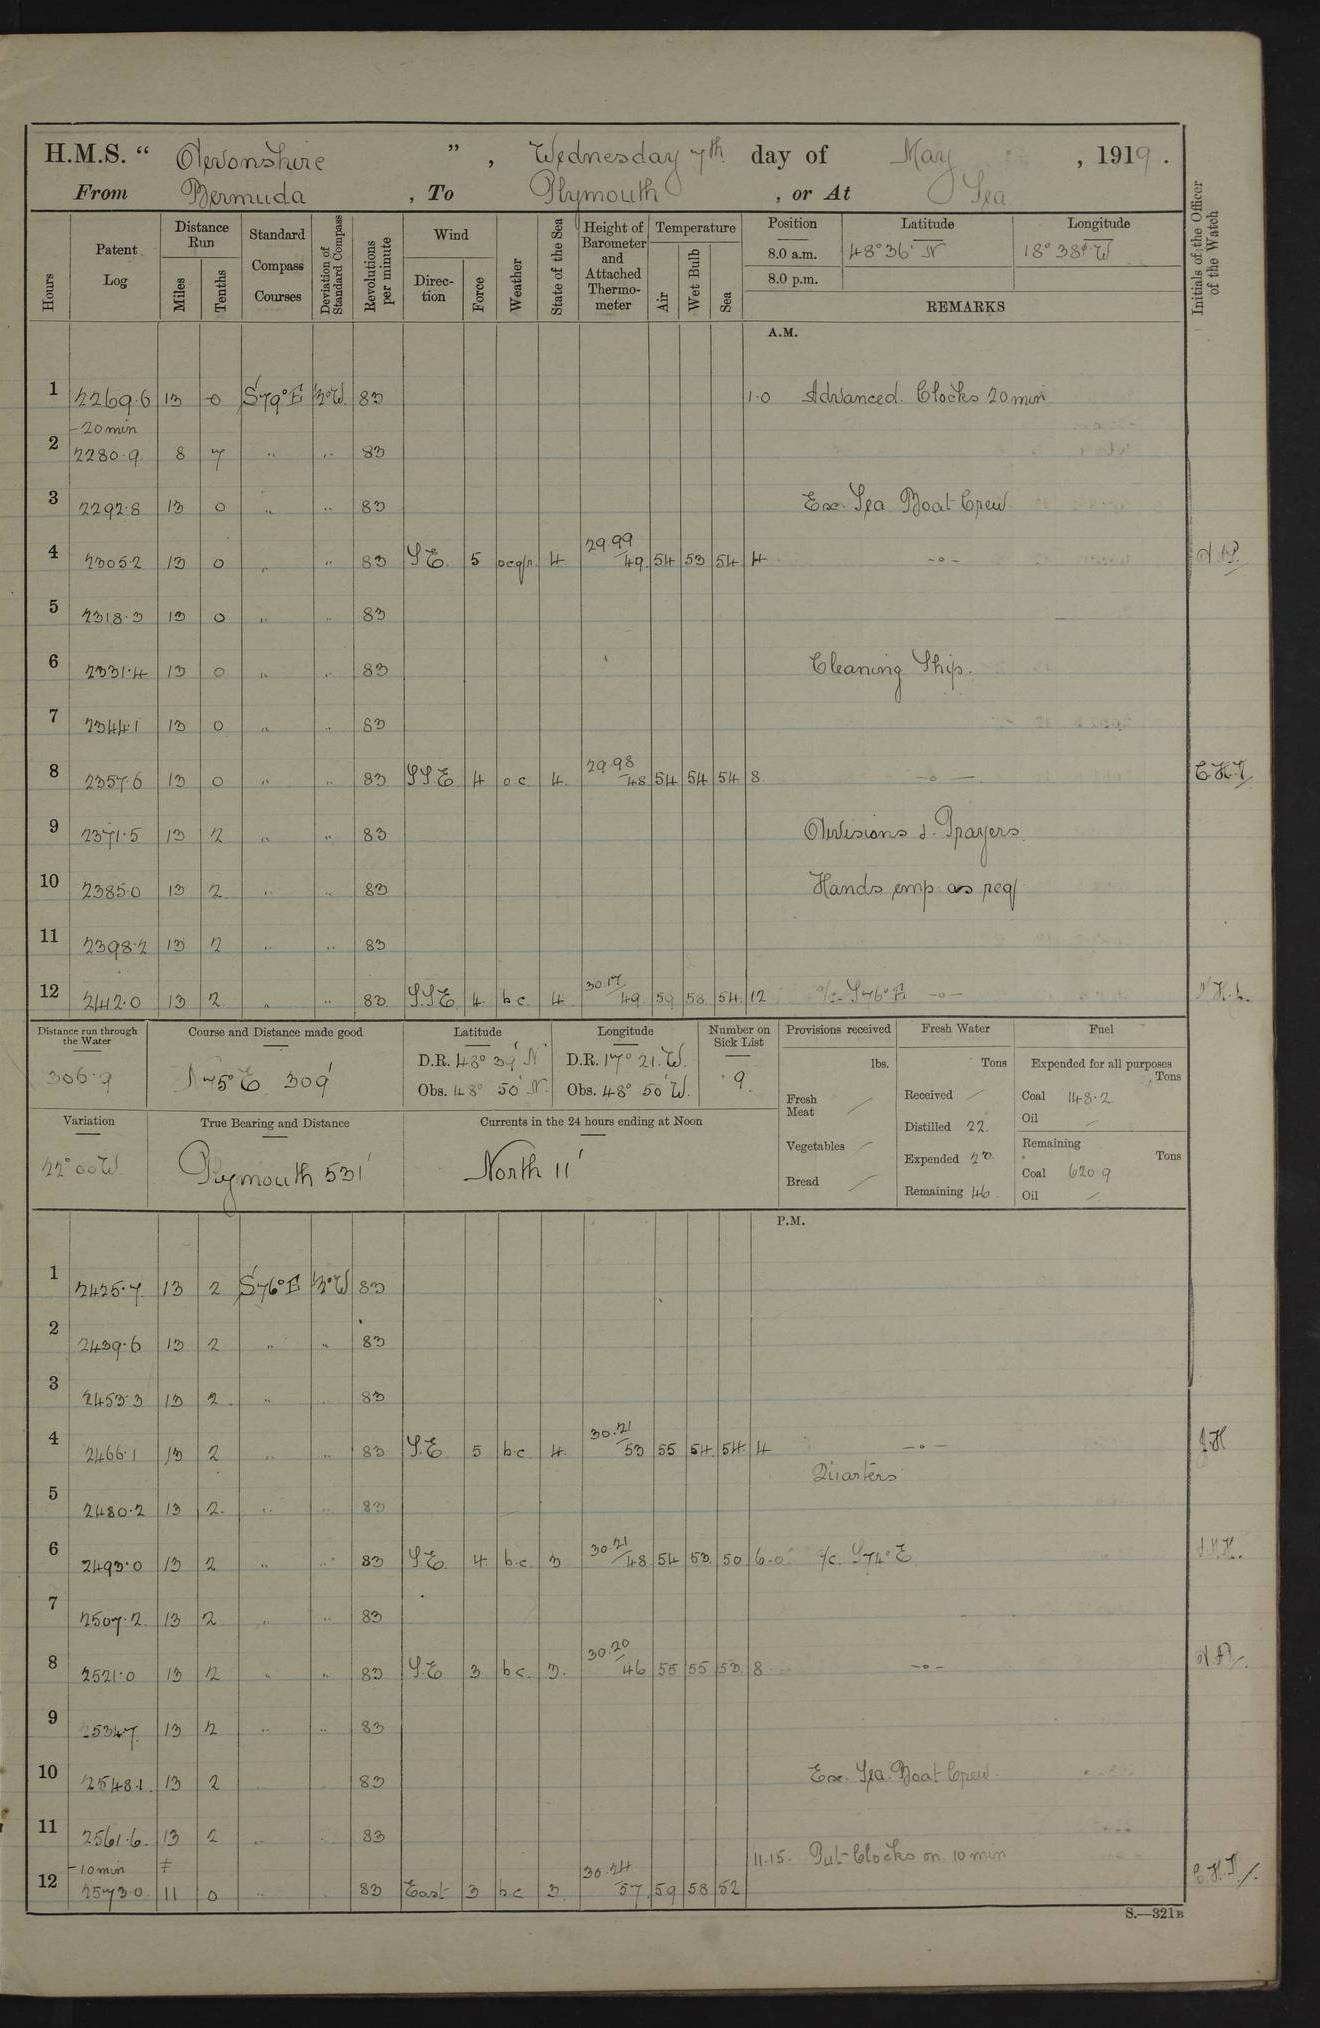 H.M.S. " Devonshire ", Wednesday 7th day of May, 1919.
From Bermuda, To Plymouth, or At Sea
Hours
Patent Log
Distance Run
Miles
Tenths
Standard Compass Courses
Deviation of Standard Compass
Revolutions per minute
Wind
Direction
Force
Weather
State of the Sea
Height of Barometer and Attached Thermometer
Temperature
Air
Wet Bulb
Sea
Position
Latitude
Longitude
8.0 a.m. 48° 36' N 18° 38' W
8.0 p.m.
REMARKS
Initials of the Officer of the Watch
A.M.
1 2269.6 13 0 S79°E 3°W 83 1.0 Advanced Clocks 20 min
-20 min
2 2280.9 8 7 " " 83
3 2292.8 13 0 " " 83 Ex. Sea Boat Crew
4 2305.2 13 0 " " 83 S.E. 5 4 29.99/49 54 53 54 4 -o-
5 2318.3 13 0 " " 83
6 2331.4 13 0 " " 83 Cleaning Ship.
7 2344.1 13 0 " " 83
8 2357.6 13 0 " " 83 SSE 4 o.c. 4 29.98/48 54 54 54 8 -o-
9 2371.5 13 2 " " 83 Divisions & Prayers
10 2385.0 13 2 " " 83 Hands emp as req
11 2398.2 13 2 " " 83
12 2412.0 13 2 " " 83 S.S.E 4 b.c. 4 30.17/49 59 58 54 12 a/c S76°E -o-
Distance run through the Water
306.9
Course and Distance made good
N75°E 309'
Latitude
D.R. 48° 39' N
Obs. 48° 50' N
Longitude
D.R. 17° 21' W.
Obs. 48° 50' W.
Number on Sick List
9
Provisions received
lbs.
Fresh Meat
Vegetables
Bread
Fresh Water
Tons
Received
Distilled 22
Expended 20
Remaining 46
Fuel
Expended for all purposes
Tons
Coal 148.2
Oil
Remaining
Tons
Coal 620.9
Oil
Variation
22°00W
True Bearing and Distance
Plymouth 531'
Currents in the 24 hours ending at Noon
North 11'
P.M.
1 2425.7 13 2 S76°E 3°W 83
2 2439.6 13 2 " " 83
3 2453.3 13 2 " 83
4 2466.1 13 2 " " 83 S.E. 5 b.c. 4 30.21/53 55 54 54 4 -o- J.H
Quarters
5 2480.2 13 2 " " 83
6 2493.0 13 2 " " 83 S.E. 4 b.c. 3 30.21/48 54 53 50 6.0 a/c. S74°E
7 2507.2 13 2 " " 83
8 2521.0 13 2 " " 83 S.E 3 b.c. 3 30.20/46 55 55 53 8 -o-
9 2534.7 13 2 " " 83
10 2548.1 13 2 83 Ex. Sea Boat Crew
11 2561.6 13 2 " 83
11.15. Put Clocks on 10 min
-10 min
12 2573.0 11 0 " 83 East 3 b.c 3 30.24/57 59 58 52
S.—321B